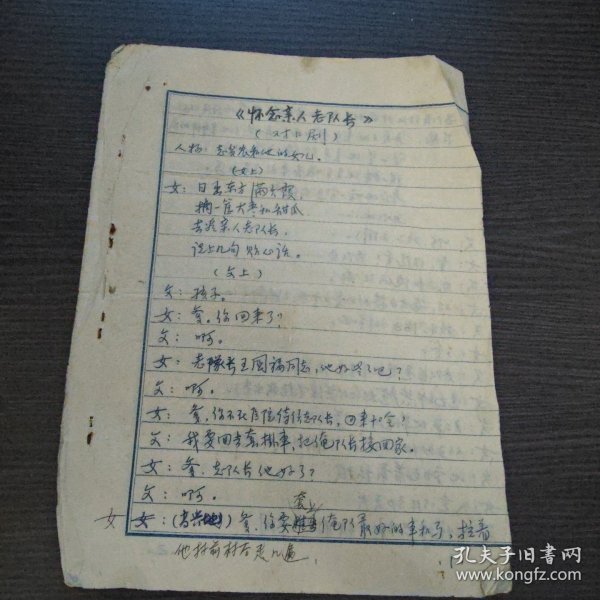 《怀念亲人老队长》
(对口剧)
人物：老贫农和他的女儿。
(女上)
女：日出东方满天霞，
摘一筐大枣和甜瓜
去送亲人老队长，
说上几句贴心话。
(父上)
父：孩子。
女：爹，你回来了？
父：啊。
女：老队长王国福同志，他好些了吧？
父：啊。
女：爹，你不在医院侍候老队长，回来干么？
父：我要回去套挂车，把俺队长接回家。
女：爹，老队长他好了？
父：啊。
女 女：(高兴地) 爹，你要套上俺队最好的车和马，拉着
他村前村后走几遍，
孔夫子旧书网
www.kongfz.com